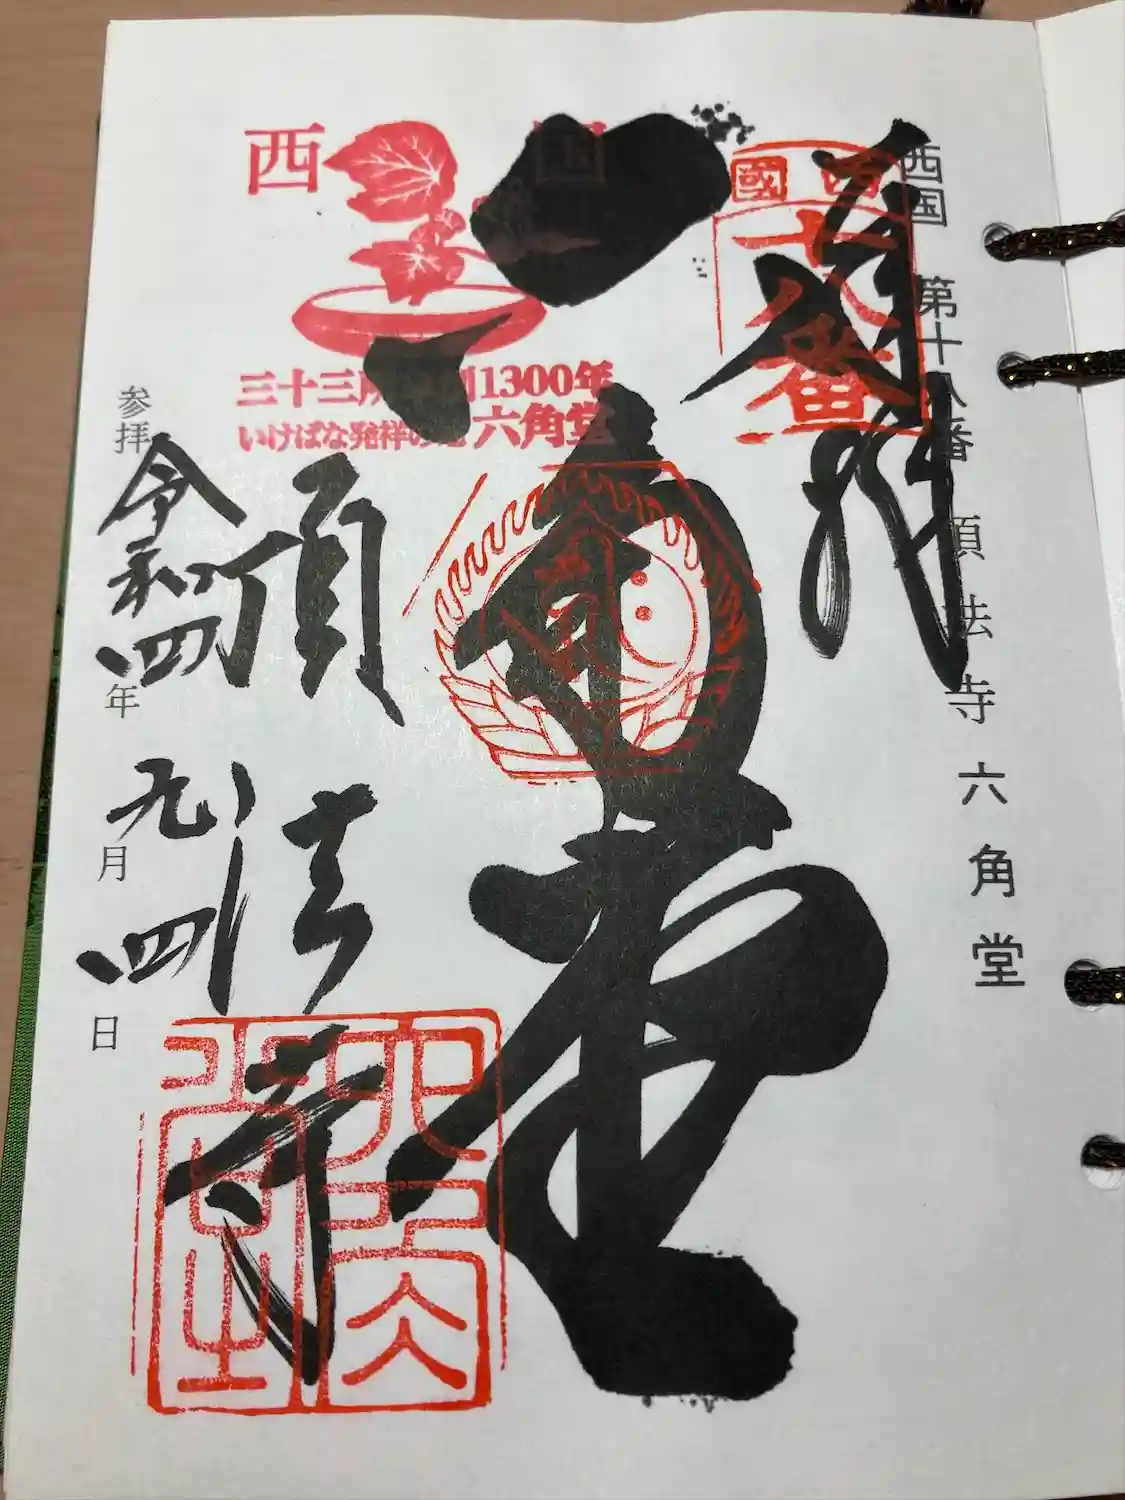 西国 第十八番 頂法寺六角堂
西國
十八番
奉拝
六角堂
西国
三十三所草創1300年
いけばな発祥の地 六角堂
頂法寺
参拝 令和四年九月四日
六角堂